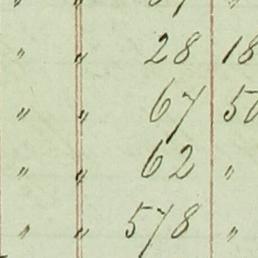 " " 28 18
" " 67 50
" " 62 "
" " 578 "